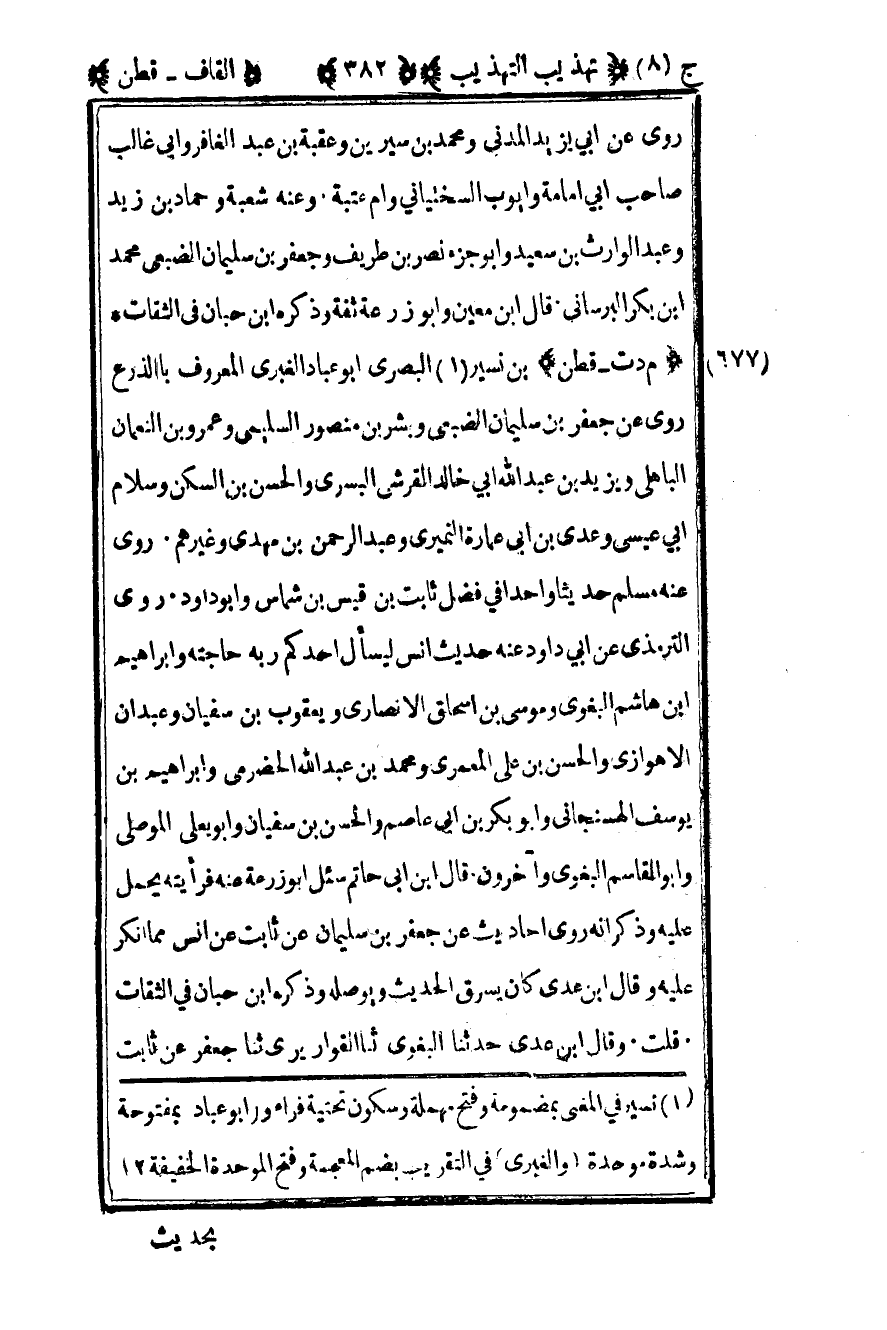 ج (٨) ﴿ تهذيب التهذيب ﴾ ﴿ ٣٨٢ ﴾ ﴿ القاف ـ قطن ﴾
روى عن ابي يزيد المدني ومحمد بن سيرين وعقبة بن عبد الغافر وابي غالب
صاحب ابي امامة وايوب السختياني وام عتبة ٠ وعنه شعبة وحماد بن زيد
وعبد الوارث بن سعيد وابو جزء نصر بن طريف وجعفر بن سليمان الضبعي محمد
ابن بكر البرساني ٠ قال ابن معين وابو زرعة ثقة وذكره ابن حبان فى الثقات *
(٦٧٧) ﴿ م د ت ـ قطن ﴾ بن نسير (١) البصرى ابو عباد الغبرى المعروف باالذرع
روى عن جعفر بن سليمان الضبعى وبشر بن منصور السليمى وعمرو بن النعمان
الباهلى ويزيد بن عبد الله ابي خالد القرشى البسرى والحسن بن السكن وسلام
ابي عيسى وعدى بن ابى عمارة النميرى وعبد الرحمن بن مهدى وغيرهم ٠ روى
عنه مسلم حديثا واحدا في فضل ثابت بن قيس بن شماس وابو داود ٠ روى
الترمذى عن ابي داود عنه حديث انس ليسأل احدكم ربه حاجته وابراهيم
ابن هاشم البغوى وموسى بن اسحاق الانصارى ويعقوب بن سفيان وعبدان
الاهوازى والحسن بن على المعمرى ومحمد بن عبد الله الحضرمى وابراهيم بن
يوسف الهسنجانى وابو بكر بن ابي عاصم والحسن بن سفيان وابو يعلى الموصلى
وابو القاسم البغوى وآخرون ٠ قال ابن ابى حاتم سئل ابو زرعة عنه فرأيته يحمل
عليه وذكر انه روى احاديث عن جعفر بن سليمان عن ثابت عن انس مما انكر
عليه وقال ابن عدى كان يسرق الحديث ويوصله وذكره ابن حبان في الثقات
٠ قلت ٠ وقال ابن عدى حدثنا البغوى ثنا القواريرى ثنا جعفر عن ثابت
(١) نسير في المغنى بمضمومة وفتح مهملة وسكون تحتية فراء وابو عباد بمفتوحة
وشدة موحدة (والغبرى) في التقريب بضم المعجمة وفتح الموحدة الخفيفة ١٢
بحديث